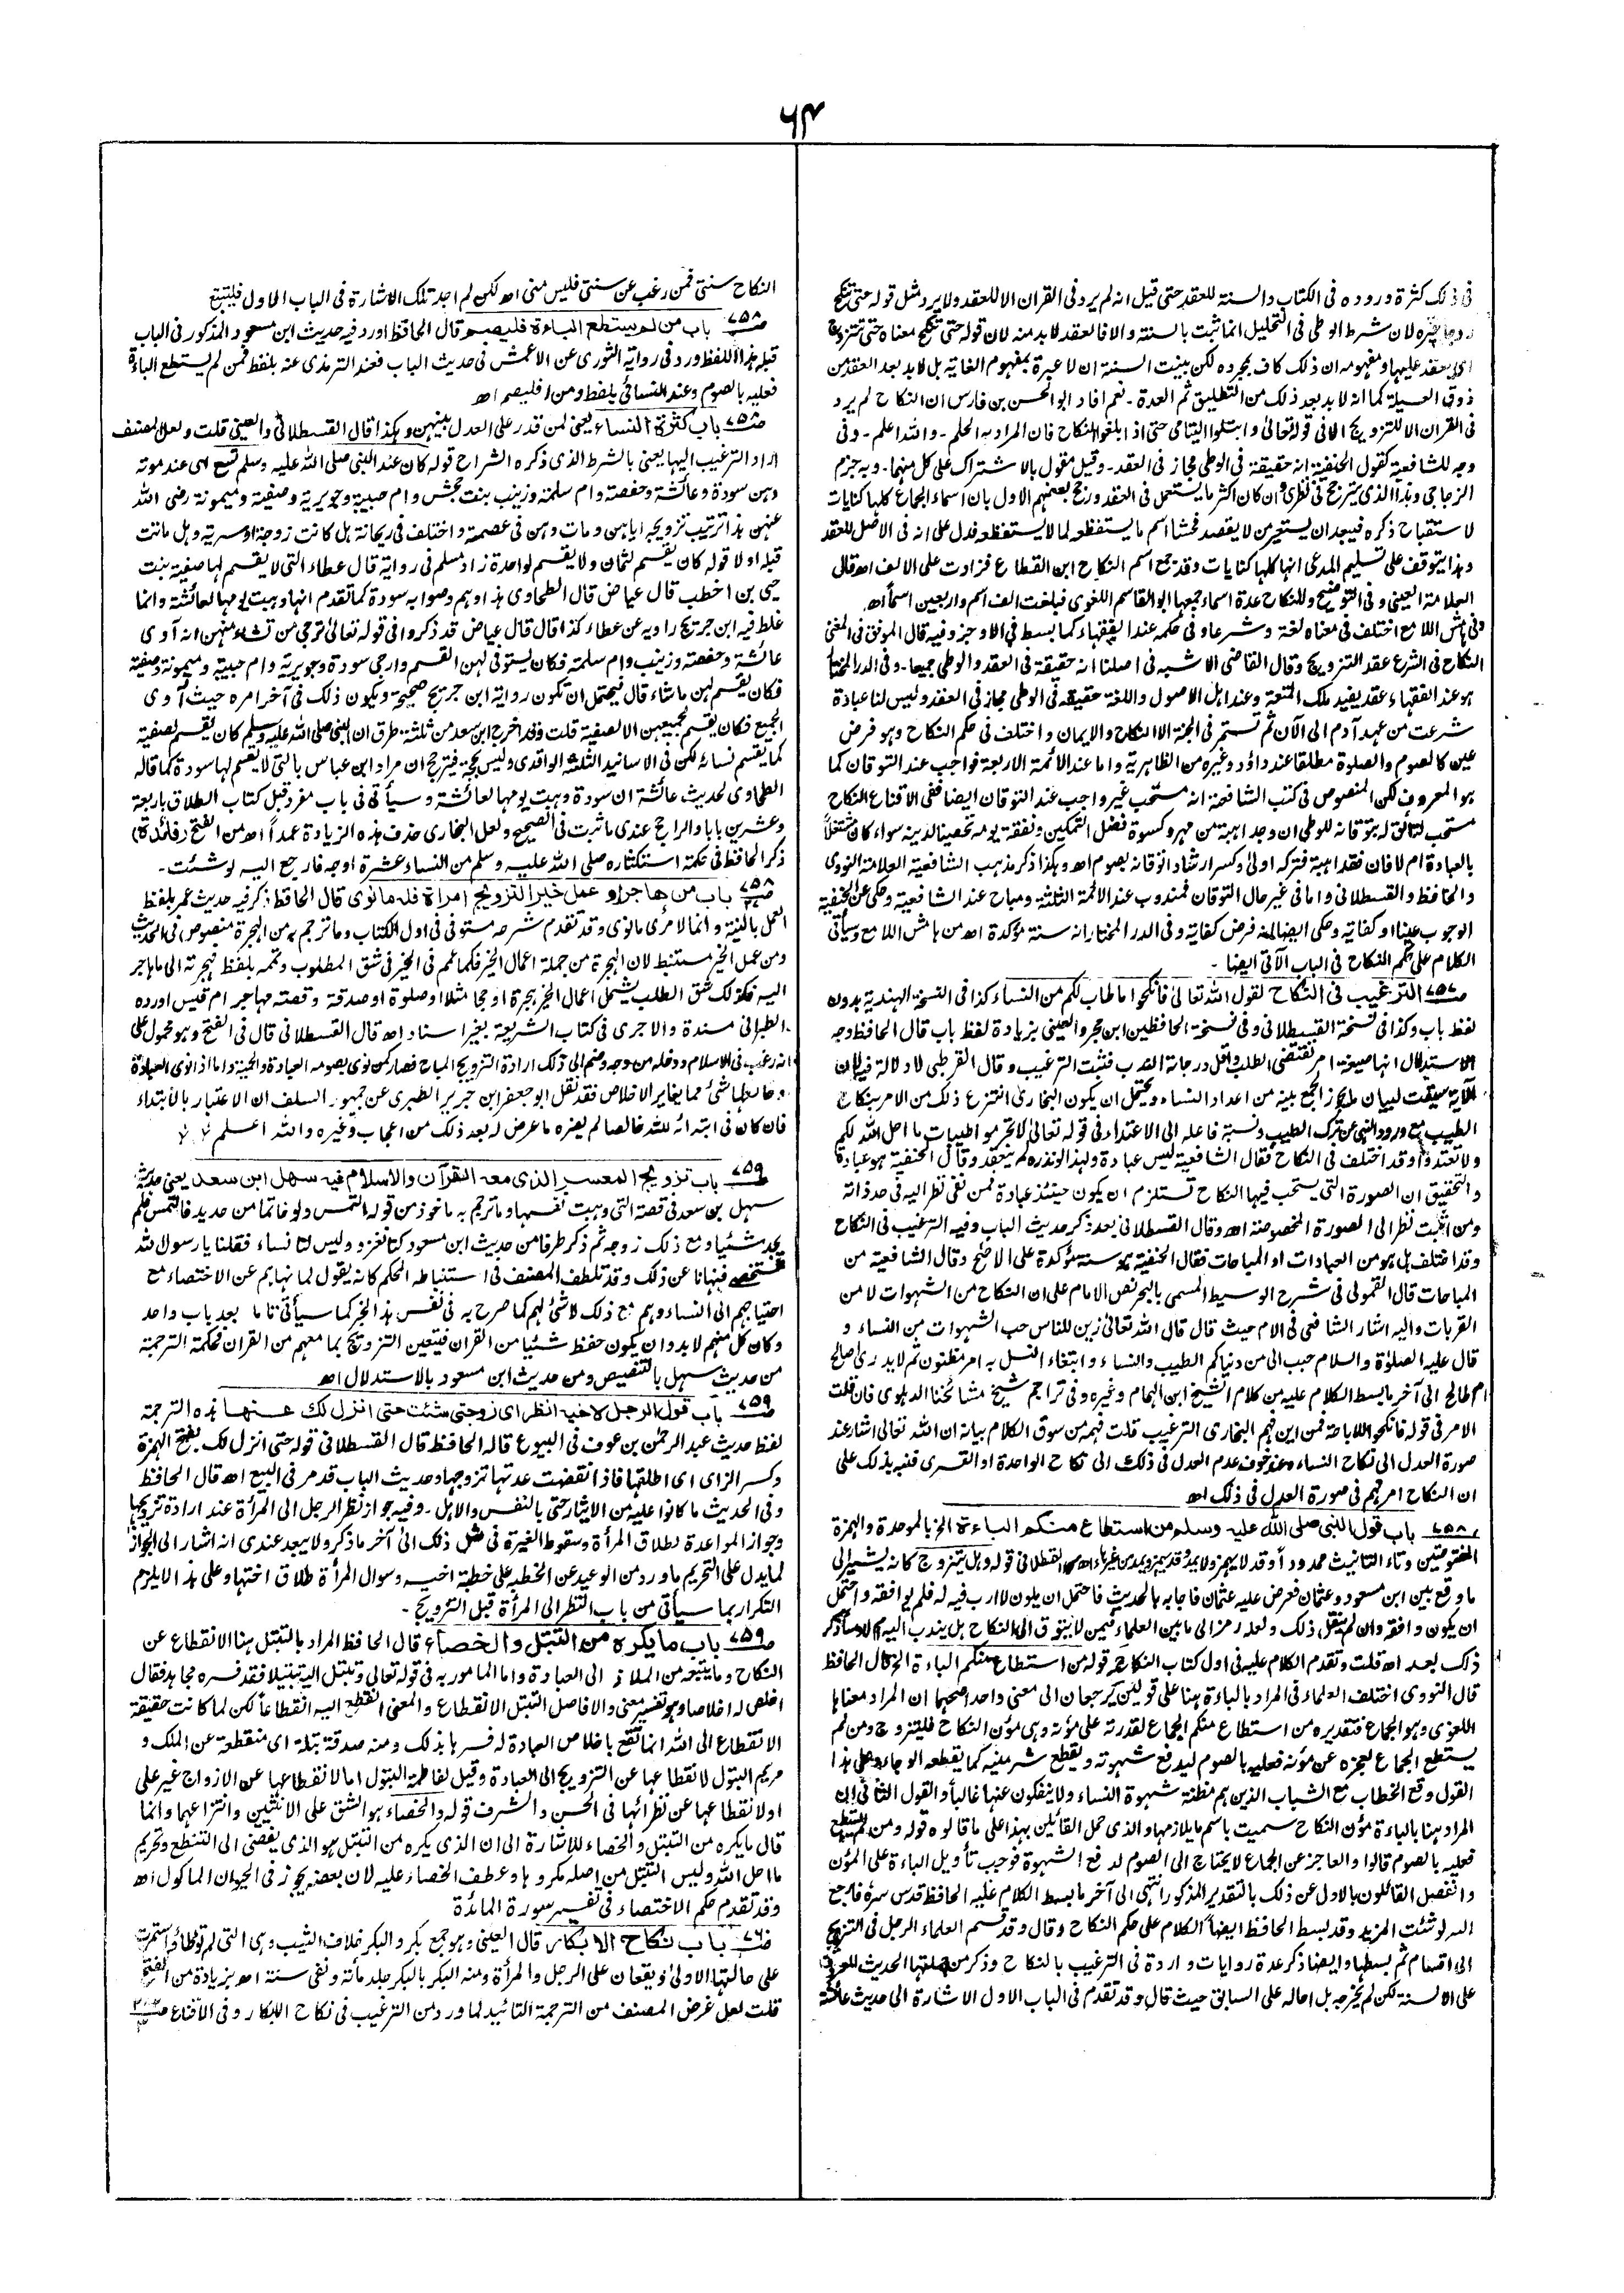 ٦٣
فى ذلك كثرة وروده فى الكتاب والسنة للعقد حتى قيل انه لم يرد فى القران الا للعقد ولا يرد مثل قوله حتى تنكح
زوجا غيره لان شرط الوطى فى التحليل انما ثبت بالسنة والا فالعقد لا بد منه لان قوله حتى تنكح معناه حتى تتزوج
اى يعقد عليها ومفهومه ان ذلك كاف بمجرده لكن بينت السنة ان لا عبرة بمفهوم الغاية بل لا بد بعد العقد من
ذوق العسيلة كما انه لا بد بعد ذلك من التطليق ثم العدة ۔ نعم افاد ابو الحسن بن فارس ان النكاح لم يرد
فى القران الا للتزويج الا فى قوله تعالى وابتلوا اليتامى حتى اذا بلغوا النكاح فان المراد به الحلم ۔ والله اعلم ۔ وفى
وجه للشافعية كقول الحنفية انه حقيقة فى الوطى مجاز فى العقد ۔ وقيل مقول بالاشتراك على كل منهما ۔ وبه جزم
الزجاجى وهذا الذى يترجح فى نظرى وان كان اكثر ما يستعمل فى العقد ورجح بعضهم الاول بان اسماء الجماع كلها كنايات
لاستقباح ذكره فيبعد ان يستعير من لا يقصد فحشا اسم ما يستفظعه لما لا يستفظعه فدل على انه فى الاصل للعقد
وهذا يتوقف على تسليم المدعى انها كلها كنايات وقد جمع اسم النكاح ابن القطاع فزادت على الالف اھ قال
العلامة العينى وفى التوضيح وللنكاح عدة اسماء جمعها ابو القاسم اللغوى فبلغت الف اسم واربعين اسما اھ
وفى هامش اللامع اختلف فى معناه لغة وشرعا وفى حكمه عند الفقهاء كما بسط فى الاوجز وفيه قال الموفق فى المغنى
النكاح فى الشرع عقد التزويج وقال القاضى الاشبه فى اصلنا انه حقيقة فى العقد والوطى جميعا ۔ وفى الدر المختار
هو عند الفقهاء عقد يفيد ملك المتعة وعند اهل الاصول واللغة حقيقة فى الوطى مجاز فى العقد وليس لنا عبادة
شرعت من عهد آدم الى الآن ثم تستمر فى الجنة الا النكاح والايمان واختلف فى حكم النكاح وهو فرض
عين كالصوم والصلوة مطلقا عند داؤد وغيره من الظاهرية واما عند الأئمة الاربعة فواجب عند التوقان كما
هو المعروف لكن المنصوص فى كتب الشافعية انه مستحب غير واجب عند التوقان ايضا ففى الاقناع النكاح
مستحب لتائق له بتوقانه للوطى ان وجد اهبة من مهر وكسوة فصل التمكين ونفقة يومه تحصينا لدينه سواء كان مشتغلا
بالعبادة ام لا فان فقد اهبة فتركه اولى وكسر ارشادا توقانه بصوم اھ وهكذا ذكر مذهب الشافعية العلامة النووى
والحافظ والقسطلانى واما فى غير حال التوقان فمندوب عند الائمة الثلثة ومباح عند الشافعية وحكى عن الحنفية
الوجوب عينا او كفاية وحكى ايضا انه فرض كفاية وفى الدر المختار انه سنة مؤكدة اھ من هامش اللامع وسيأتى
الكلام على حكم النكاح فى الباب الآتى ايضا ۔
صـ٧٥٧ الترغيب فى النكاح لقول الله تعالى فانكحوا ما طاب لكم من النساء كذا فى النسخة الهندية بدون
لفظ باب وكذا فى نسخة القسطلانى وفى نسخة الحافظين ابن حجر والعينى بزيادة لفظ باب قال الحافظ وجه
الاستدلال انها صيغة امر تقتضى الطلب واقل درجاته الندب فثبت الترغيب وقال القرطبى لا دلالة فيه لان
الآية سيقت لبيان ما يجوز الجمع بينه من اعداد النساء ويحتمل ان يكون البخارى انتزع ذلك من الامر بنكاح
الطيب مع ورود النهى عن ترك الطيب ونسبة فاعله الى الاعتداء فى قوله تعالى لا تحرموا طيبات ما احل الله لكم
ولا تعتدوا وقد اختلف فى النكاح فقال الشافعية ليس عبادة ولهذا لو نذره لم ينعقد وقال الحنفية هو عبادة
والتحقيق ان الصورة التى يستحب فيها النكاح تستلزم ان يكون حينئذ عبادة فمن نفى نظر اليه فى حد ذاته
ومن اثبت نظر الى الصورة المخصوصة اھ وقال القسطلانى بعد ذكر حديث الباب وفيه الترغيب فى النكاح
وقد اختلف هل هو من العبادات او المباحات فقال الحنفية هو سنة مؤكدة على الاصح وقال الشافعية من
المباحات قال القمولى فى شرح الوسيط المسمى بالبحر نص الامام على ان النكاح من الشهوات لا من
القربات واليه اشار الشافعى فى الام حيث قال قال الله تعالى زين للناس حب الشهوات من النساء و
قال عليه الصلوة والسلام حبب الى من دنياكم الطيب والنساء وابتغاء النسل به امر مظنون ثم لا يدرى اصالح
ام طالح الى آخر ما بسط الكلام عليه من كلام الشيخ ابن الهمام وغيره وفى تراجم شيخ مشائخنا الدهلوى فان قلت
الامر فى قوله فانكحوا للاباحة فمن اين فهم البخارى الترغيب قلت فهمه من سوق الكلام بيانه ان الله تعالى اشار عند
صورة العدل الى نكاح النساء وعند خوف عدم العدل فى ذلك الى نكاح الواحدة او التسرى فنبه بذلك على
ان النكاح امر مهم فى صورة العدل فى ذلك اھ
صـ٧٥٨ باب قول النبى صلى الله عليه وسلم من استطاع منكم الباءة الخ بالموحدة والهمزة
المفتوحتين وتاء التانيث ممدودا وقد لا يهمز ولا يمد وقد يهمز ويمد من غير هاء اھ من القسطلانى قوله وهل يتزوج كانه يشير الى
ما وقع بين ابن مسعود وعثمان فعرض عليه عثمان فاجابه بالحديث فاحتمل ان يكون لا ارب فيه له فلم يوافقه واحتمل
ان يكون وافقه وان لم ينقل ذلك ولعله رمز الى ما بين العلماء فيمن لا يتوق الى النكاح هل يندب اليه ام لا وسأذكر
ذلك بعد اھ قلت وتقدم الكلام عليه فى اول كتاب النكاح قوله من استطاع منكم الباءة الخ قال الحافظ
قال النووى اختلف العلماء فى المراد بالباءة هنا على قولين يرجعان الى معنى واحد اصحهما ان المراد معناها
اللغوى وهو الجماع فتقديره من استطاع منكم الجماع لقدرته على مؤنه وهى مؤن النكاح فليتزوج ومن لم
يستطع الجماع لعجزه عن مؤنه فعليه بالصوم ليدفع شهوته ويقطع شر منيه كما يقطعه الوجاء وعلى هذا
القول وقع الخطاب مع الشباب الذين هم مظنة شهوة النساء ولا ينفكون عنها غالبا والقول الثانى ان
المراد هنا بالباءة مؤن النكاح سميت باسم ما يلازمها والذى حمل القائلين بهذا على ما قالوه قوله ومن لم يستطع
فعليه بالصوم قالوا والعاجز عن الجماع لا يحتاج الى الصوم لدفع الشهوة فوجب تأويل الباءة على المؤن
وانفصل القائلون بالاول عن ذلك بالتقدير المذكور انتهى الى آخر ما بسط الكلام عليه الحافظ قدس سره فارجع
اليه لو شئت المزيد وقد بسط الحافظ ايضا الكلام على حكم النكاح وقال وقد قسم العلماء الرجل فى التزويج
الى اقسام ثم بسطها وايضا ذكر عدة روايات واردة فى الترغيب بالنكاح وذكر من جملتها الحديث المعروف
على الالسنة لكن لم يخرجه بل احاله على السابق حيث قال وقد تقدم فى الباب الاول الاشارة الى حديث عائشة
النكاح سنتى فمن رغب عن سنتى فليس منى اھ لكن لم اجد تلك الاشارة فى الباب الاول فليتتبع
صـ٧٥٨ باب من لم يستطع الباءة فليصم قال الحافظ اورد فيه حديث ابن مسعود المذكور فى الباب
قبله وهذا اللفظ ورد فى رواية الثورى عن الاعمش فى حديث الباب فعند الترمذى عنه بلفظ فمن لم يستطع الباءة
فعليه بالصوم وعند النسائى بلفظ ومن لا فليصم اھ
صـ٧٥٨ باب كثرة النساء يعنى لمن قدر على العدل بينهن وهكذا قال القسطلانى والعينى قلت ولعل المصنف
اراد الترغيب اليها يعنى بالشرط الذى ذكره الشراح قوله كان عند النبى صلى الله عليه وسلم تسع اى عند موته
وهن سودة وعائشة وحفصة وام سلمة وزينب بنت جحش وام حبيبة وجويرية وصفية وميمونة رضى الله
عنهن هذا ترتيب تزويجه اياهن ومات وهن فى عصمته واختلف فى ريحانة هل كانت زوجة او سرية وهل ماتت
قبله او لا قوله كان يقسم لثمان ولا يقسم لواحدة زاد مسلم فى رواية قال عطاء التى لا يقسم لها صفية بنت
حيى بن اخطب قال عياض قال الطحاوى هذا وهم وصوابه سودة كما تقدم انها وهبت يومها لعائشة وانما
غلط فيه ابن جريج راويه عن عطاء كذا قال قال عياض قد ذكروا فى قوله تعالى ترجى من تشاء منهن انه آوى
عائشة وحفصة وزينب وام سلمة فكان يستوفى لهن القسم وارجى سودة وجويرية وام حبيبة وميمونة وصفية
فكان يقسم لهن ما شاء قال فيحتمل ان تكون رواية ابن جريج صحيحة ويكون ذلك فى آخر امره حيث آوى
الجميع فكان يقسم لجميعهن الا لصفية قلت وقد اخرج ابن سعد من ثلثة طرق ان النبى صلى الله عليه وسلم كان يقسم لصفية
كما يقسم لنسائه لكن فى الاسانيد الثلثة الواقدى وليس بحجة فيترجح ان مراد ابن عباس بالتى لا يقسم لها سودة كما قاله
الطحاوى لحديث عائشة ان سودة وهبت يومها لعائشة وسيأتى فى باب مفرد قبل كتاب الطلاق باربعة
وعشرين بابا والراجح عندى ما ثبت فى الصحيح ولعل البخارى حذف هذه الزيادة عمدا اھ من الفتح (فائدة)
ذكر الحافظ فى حكمة استكثاره صلى الله عليه وسلم من النساء عشرة اوجه فارجع اليه لو شئت ۔
صـ٧٥٨ باب من هاجر او عمل خيرا لتزويج امراة فله ما نوى قال الحافظ ذكر فيه حديث عمر بلفظ
العمل بالنية وانما لامرئ ما نوى وقد تقدم شرحه مستوفى فى اول الكتاب وما ترجم به من الهجرة منصوص فى الحديث
ومن عمل الخير مستنبط لان الهجرة من جملة اعمال الخير فكما عمم فى الخير فى شق المطلوب وتممه بلفظ فهجرته الى ما هاجر
اليه فكذلك شق الطلب يشمل اعمال الخير هجرة او حجا مثلا او صلوة او صدقة وقصة مهاجر ام قيس اورده
الطبرانى مسندة والاجرى فى كتاب الشريعة بغير اسناد اھ قال القسطلانى قال فى الفتح وهو محمول على
انه رغب فى الاسلام ودخله من وجهه وضم الى ذلك ارادة التزويج المباح فصار كمن نوى بصومه العبادة والحمية واما اذا نوى العبادة
وخالطها شئ مما يغاير الاخلاص فقد نقل ابو جعفر ابن جرير الطبرى عن جمهور السلف ان الاعتبار بالابتداء
فان كان فى ابتدائه لله خالصا لم يضره ما عرض له بعد ذلك من اعجاب وغيره والله اعلم
صـ٧٥٩ باب تزويج المعسر الذى معه القرآن والاسلام فيه سهل ابن سعد يعنى حديث
سهل بن سعد فى قصة التى وهبت نفسها وما ترجم به ماخوذ من قوله التمس ولو خاتما من حديد فالتمس فلم
يجد شيئا ومع ذلك زوجه ثم ذكر طرفا من حديث ابن مسعود كنا نغزو وليس لنا نساء فقلنا يا رسول الله
نستخصى فنهانا عن ذلك وقد تلطف المصنف فى استنباطه الحكم كانه يقول لما نهاهم عن الاختصاء مع
احتياجهم الى النساء وهم مع ذلك لا شئ لهم كما صرح به فى نفس هذا الخبر كما سيأتى تاما بعد باب واحد
وكان كل منهم لا بد وان يكون حفظ شيئا من القران فتعين التزويج بما معهم من القران فحكمة الترجمة
من حديث سهل بالتنصيص ومن حديث ابن مسعود بالاستدلال اھ
صـ٧٥٩ باب قول الرجل لاخيه انظر اى زوجتى شئت حتى انزل لك عنها هذه الترجمة
لفظ حديث عبد الرحمٰن بن عوف فى البيوع قاله الحافظ قال القسطلانى قوله حتى انزل لك بفتح الهمزة
وكسر الزاى اى اطلقها فاذا انقضت عدتها تزوجها وحديث الباب قد مر فى البيع اھ قال الحافظ
وفى الحديث ما كانوا عليه من الايثار حتى بالنفس والاهل ۔ وفيه جواز نظر الرجل الى المرأة عند ارادة تزويجها
وجواز المواعدة بطلاق المرأة وسقوط الغيرة فى مثل ذلك الى آخر ما ذكر ولا يبعد عندى انه اشار الى الجواز
لما يدل على التحريم ما ورد من الوعيد عن الخطبة على خطبة اخيه وسوال المرأة طلاق اختها وعلى هذا لا يلزم
التكرار بما سيأتى من باب النظر الى المرأة قبل التزويج ۔
صـ٧٥٩ باب ما يكره من التبتل والخصاء قال الحافظ المراد بالتبتل هنا الانقطاع عن
النكاح وما يتبعه من الملاذ الى العبادة واما المامور به فى قوله تعالى وتبتل اليه تبتيلا فقد فسره مجاهد فقال
اخلص له اخلاصا وهو تفسير معنى والا فاصل التبتل الانقطاع والمعنى انقطع اليه انقطاعا لكن لما كانت حقيقة
الانقطاع الى الله انما تقع باخلاص العبادة له فسرها بذلك ومنه صدقة بتلة اى منقطعة عن الملك و
مريم البتول لانقطاعها عن التزويج الى العبادة وقيل لفاطمة البتول اما لانقطاعها عن الازواج غير على
او لانقطاعها عن نظرائها فى الحسن والشرف قوله والخصاء هو الشق على الانثيين وانتزاعهما وانما
قال ما يكره من التبتل والخصاء للاشارة الى ان الذى يكره من التبتل هو الذى يفضى الى التنطع وتحريم
ما احل الله وليس التبتل من اصله مكروها وعطف الخصاء عليه لان بعضه يجوز فى الحيوان الماكول اھ
وقد تقدم حكم الاختصاء فى تفسير سورة المائدة
صـ٧٦٠ باب نكاح الابكار قال العينى وهو جمع بكر والبكر خلاف الثيب وهى التى لم توطأ واستمرت
على حالتها الاولى ويقعان على الرجل والمرأة ومنه البكر بالبكر جلد مائة ونفى سنة اھ بزيادة من الفتح
قلت لعل غرض المصنف من الترجمة التائيد لما ورد من الترغيب فى نكاح الابكار وفى الاقناع